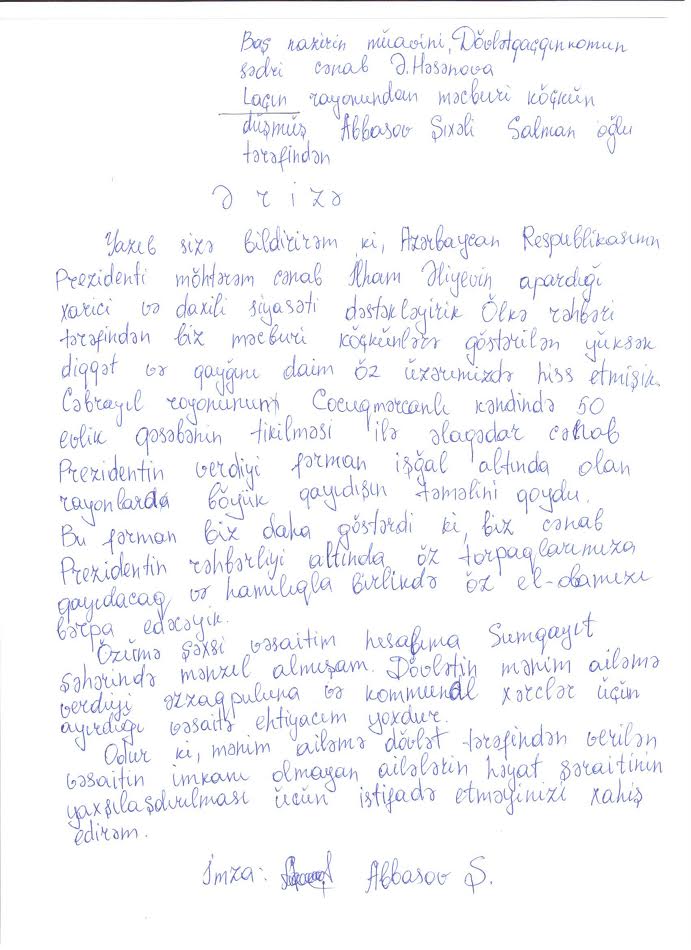 Baş nazirin müavini, Dövlətqaçqınkomun
sədri cənab Ə.Həsənova
Laçın rayonundan məcburi köçkün
düşmüş Abbasov Şıxəli Salman oğlu
tərəfindən
Ə r i z ə
Yazıb sizə bildirirəm ki, Azərbaycan Respublikasının
Prezidenti möhtərəm cənab İlham Əliyevin apardığı
xarici və daxili siyasəti dəstəkləyirik Ölkə rəhbəri
tərəfindən biz məcburi köçkünlərə göstərilən yüksək
diqqət və qayğını daim öz üzərimizdə hiss etmişik.
Cəbrayıl rayonunun Cocuqmərcanlı kəndində 50
evlik qəsəbənin tikilməsi ilə əlaqədar cənab
Prezidentin verdiyi fərman işğal altında olan
rayonlarda böyük qayıdışın təməlini qoydu.
Bu fərman biz daha göstərdi ki, biz cənab
Prezidentin rəhbərliyi altında öz torpaqlarımıza
qayıdacaq və hamılıqla birlikdə öz el-obamızı
bərpa edəcəyik.
Özümə şəxsi vəsaitim hesabıma Sumqayıt
şəhərində mənzil almışam. Dövlətin mənim ailəmə
verdiyi ərzaqpuluna və kommunal xərclər üçün
ayırdığı vəsaitə ehtiyacım yoxdur.
Odur ki, mənim ailəmə dövlət tərəfindən verilən
vəsaitin imkanı olmayan ailələrin həyat şəraitinin
yaxşılaşdırılması üçün istifadə etməyinizi xahiş
edirəm.
İmza: Abbasov Ş.